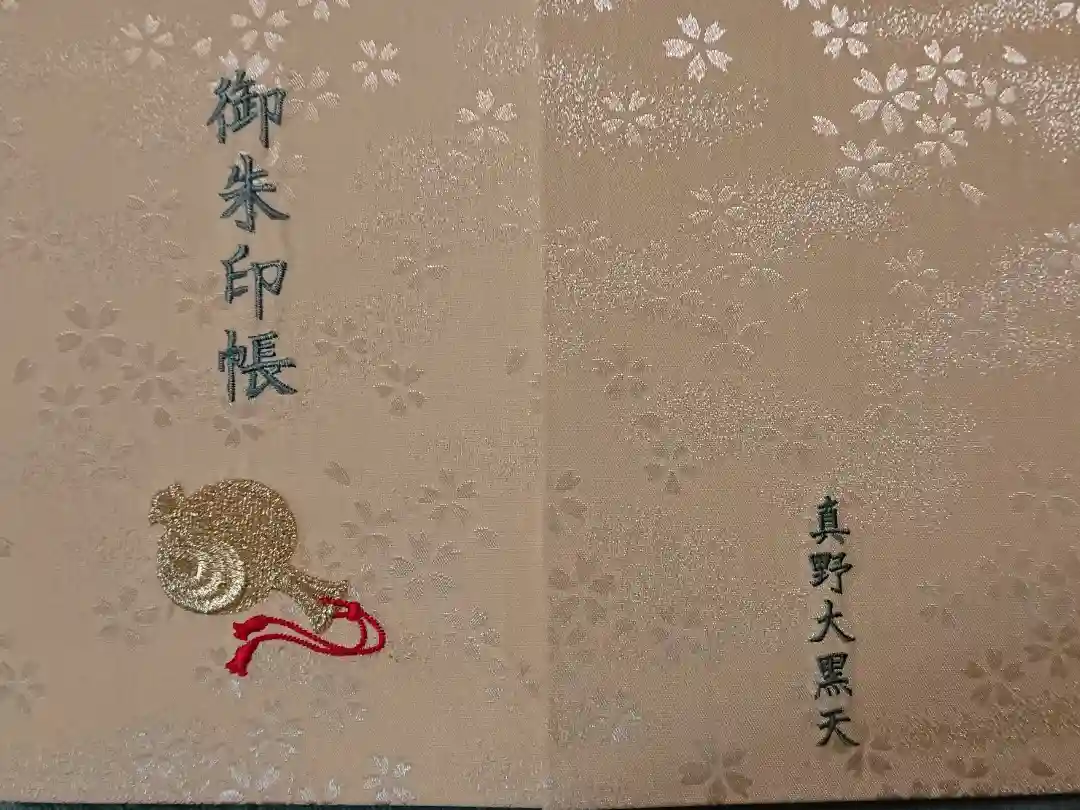 御朱印帳
真野大黒天